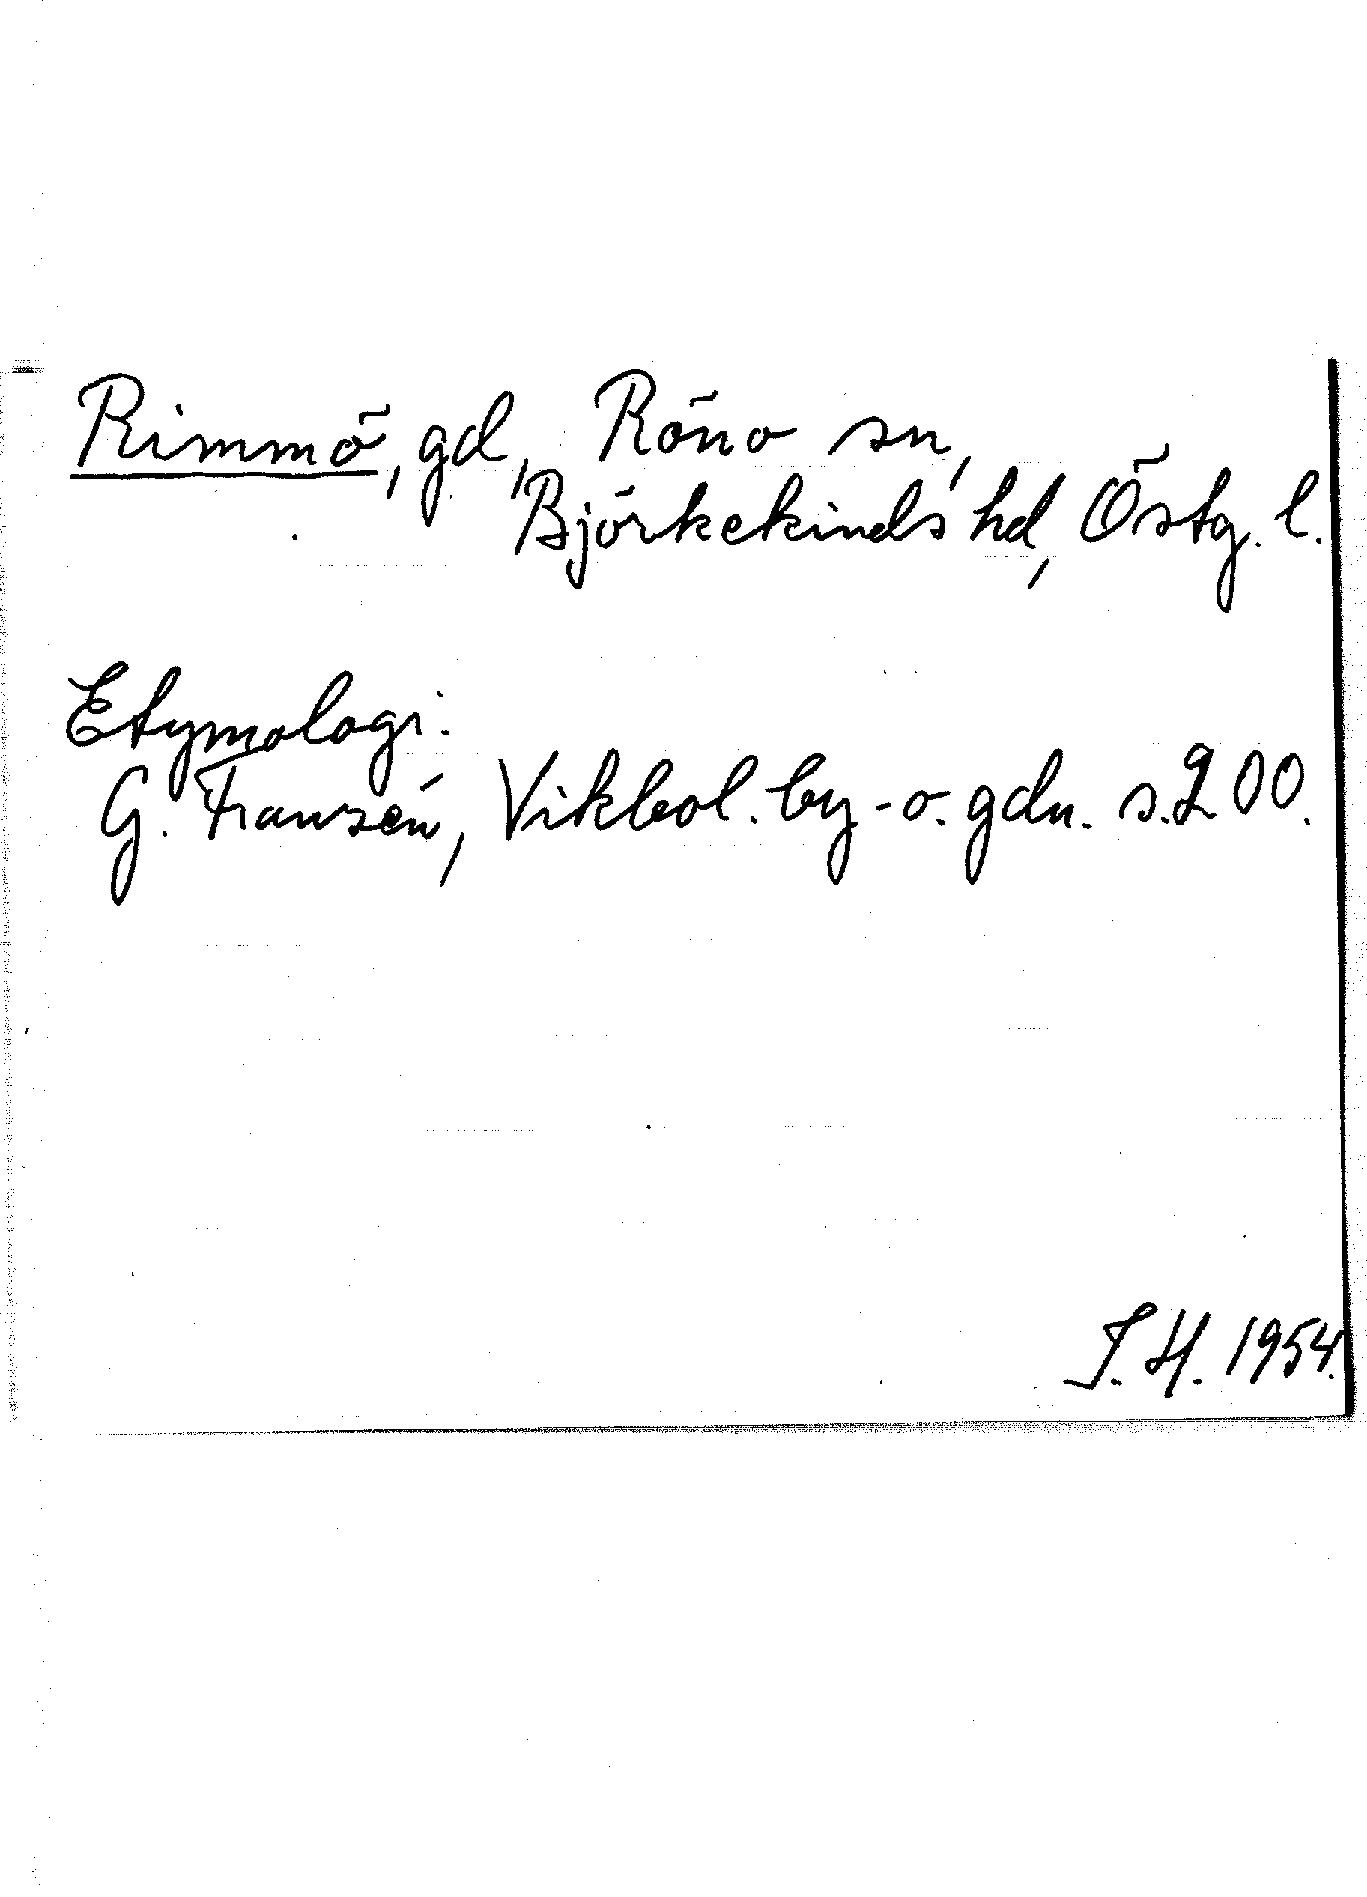 Rimmö, gd, Röno sn,
Björkekinds hd, Östg. l.
Etymologi:
G. Franzén, Vikbol. by- o. gdn. s. 200.
I. H. 1954.